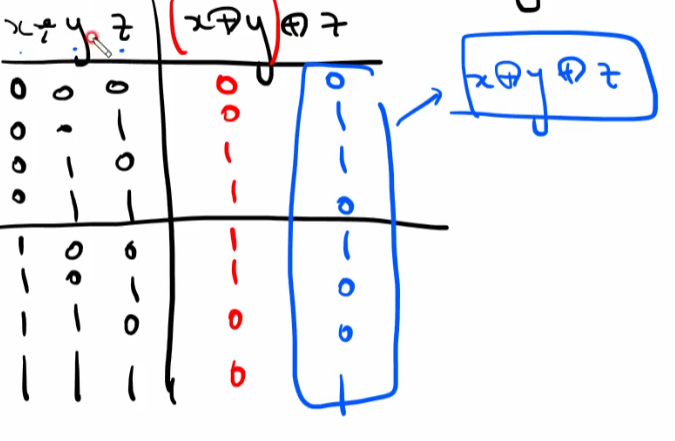 x y z (x⊕y)⊕z
0 0 0 0 0 x⊕y⊕z
0 0 1 0 1
0 1 0 1 1
0 1 1 1 0
1 0 0 1 1
1 0 1 1 0
1 1 0 0 0
1 1 1 0 1